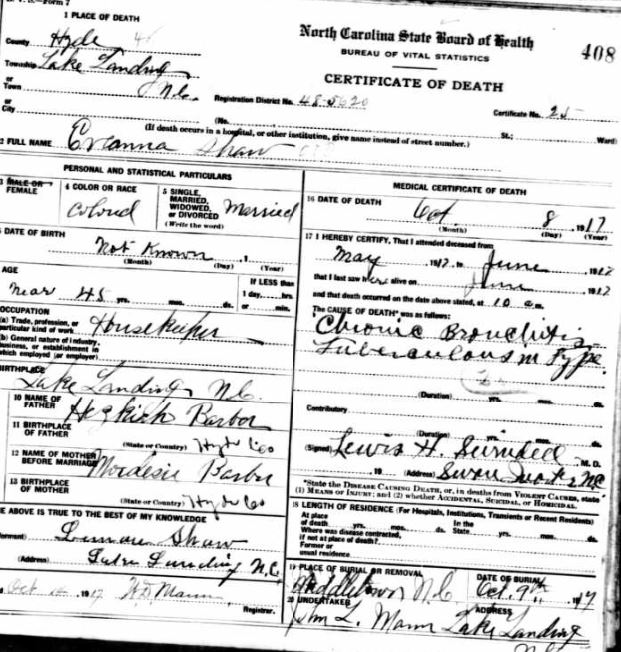 Form 7
1 PLACE OF DEATH
County Hyde
Township Lake Landing
or
Town N.C.
or
City
North Carolina State Board of Health
BUREAU OF VITAL STATISTICS
CERTIFICATE OF DEATH
408
Registration District No. 48-5620 Certificate No. 25
(No. St.; Ward)
(If death occurs in a hospital, or other institution, give name instead of street number.)
2 FULL NAME Evanna Shaw
PERSONAL AND STATISTICAL PARTICULARS
3 MALE OR FEMALE
4 COLOR OR RACE
Colored
5 SINGLE, MARRIED, WIDOWED, or DIVORCED
(Write the word)
Married
DATE OF BIRTH
Not Known, 1
(Month) (Day) (Year)
AGE
Near 45 yrs. mos. ds.
IF LESS than
1 day, hrs
or min.
OCCUPATION
(a) Trade, profession, or
particular kind of work. Housekeeper
(b) General nature of industry,
business, or establishment in
which employed (or employer)
BIRTHPLACE
Lake Landing N.C.
10 NAME OF FATHER
11 BIRTHPLACE OF FATHER
(State or Country) Hyde Co
12 NAME OF MOTHER BEFORE MARRIAGE
13 BIRTHPLACE OF MOTHER
(State or Country) Hyde Co
THE ABOVE IS TRUE TO THE BEST OF MY KNOWLEDGE
(Informant) Shaw
(Address) Lake Landing N.C.
Oct 1917 W.D. Mann
Registrar.
MEDICAL CERTIFICATE OF DEATH
16 DATE OF DEATH
Oct. 8, 1917
(Month) (Day) (Year)
17 I HEREBY CERTIFY, That I attended deceased from
May 1917 to June 1917
that I last saw her alive on June 1917
and that death occurred on the date above stated, at 10 am
The CAUSE OF DEATH* was as follows:
Chronic Bronchitis
Tuberculous in type
(Duration) yrs. mos. ds.
Contributory
(Duration) yrs. mos. ds.
(Signed) Lewis H. Swindell M. D.
, 19 (Address) Swan Quarter NC
*State the DISEASE CAUSING DEATH, or, in deaths from VIOLENT CAUSES, state
(1) MEANS OF INJURY; and (2) whether ACCIDENTAL, SUICIDAL, or HOMICIDAL.
18 LENGTH OF RESIDENCE (For Hospitals, Institutions, Transients or Recent Residents)
At place
of death yrs. mos. ds. In the State yrs. mos. ds.
Where was disease contracted,
if not at place of death?
Former or
usual residence
19 PLACE OF BURIAL OR REMOVAL
Middletown N.C.
DATE OF BURIAL
Oct. 9th, 1917
20 UNDERTAKER
L. Mann
ADDRESS
Lake Landing
N.C.